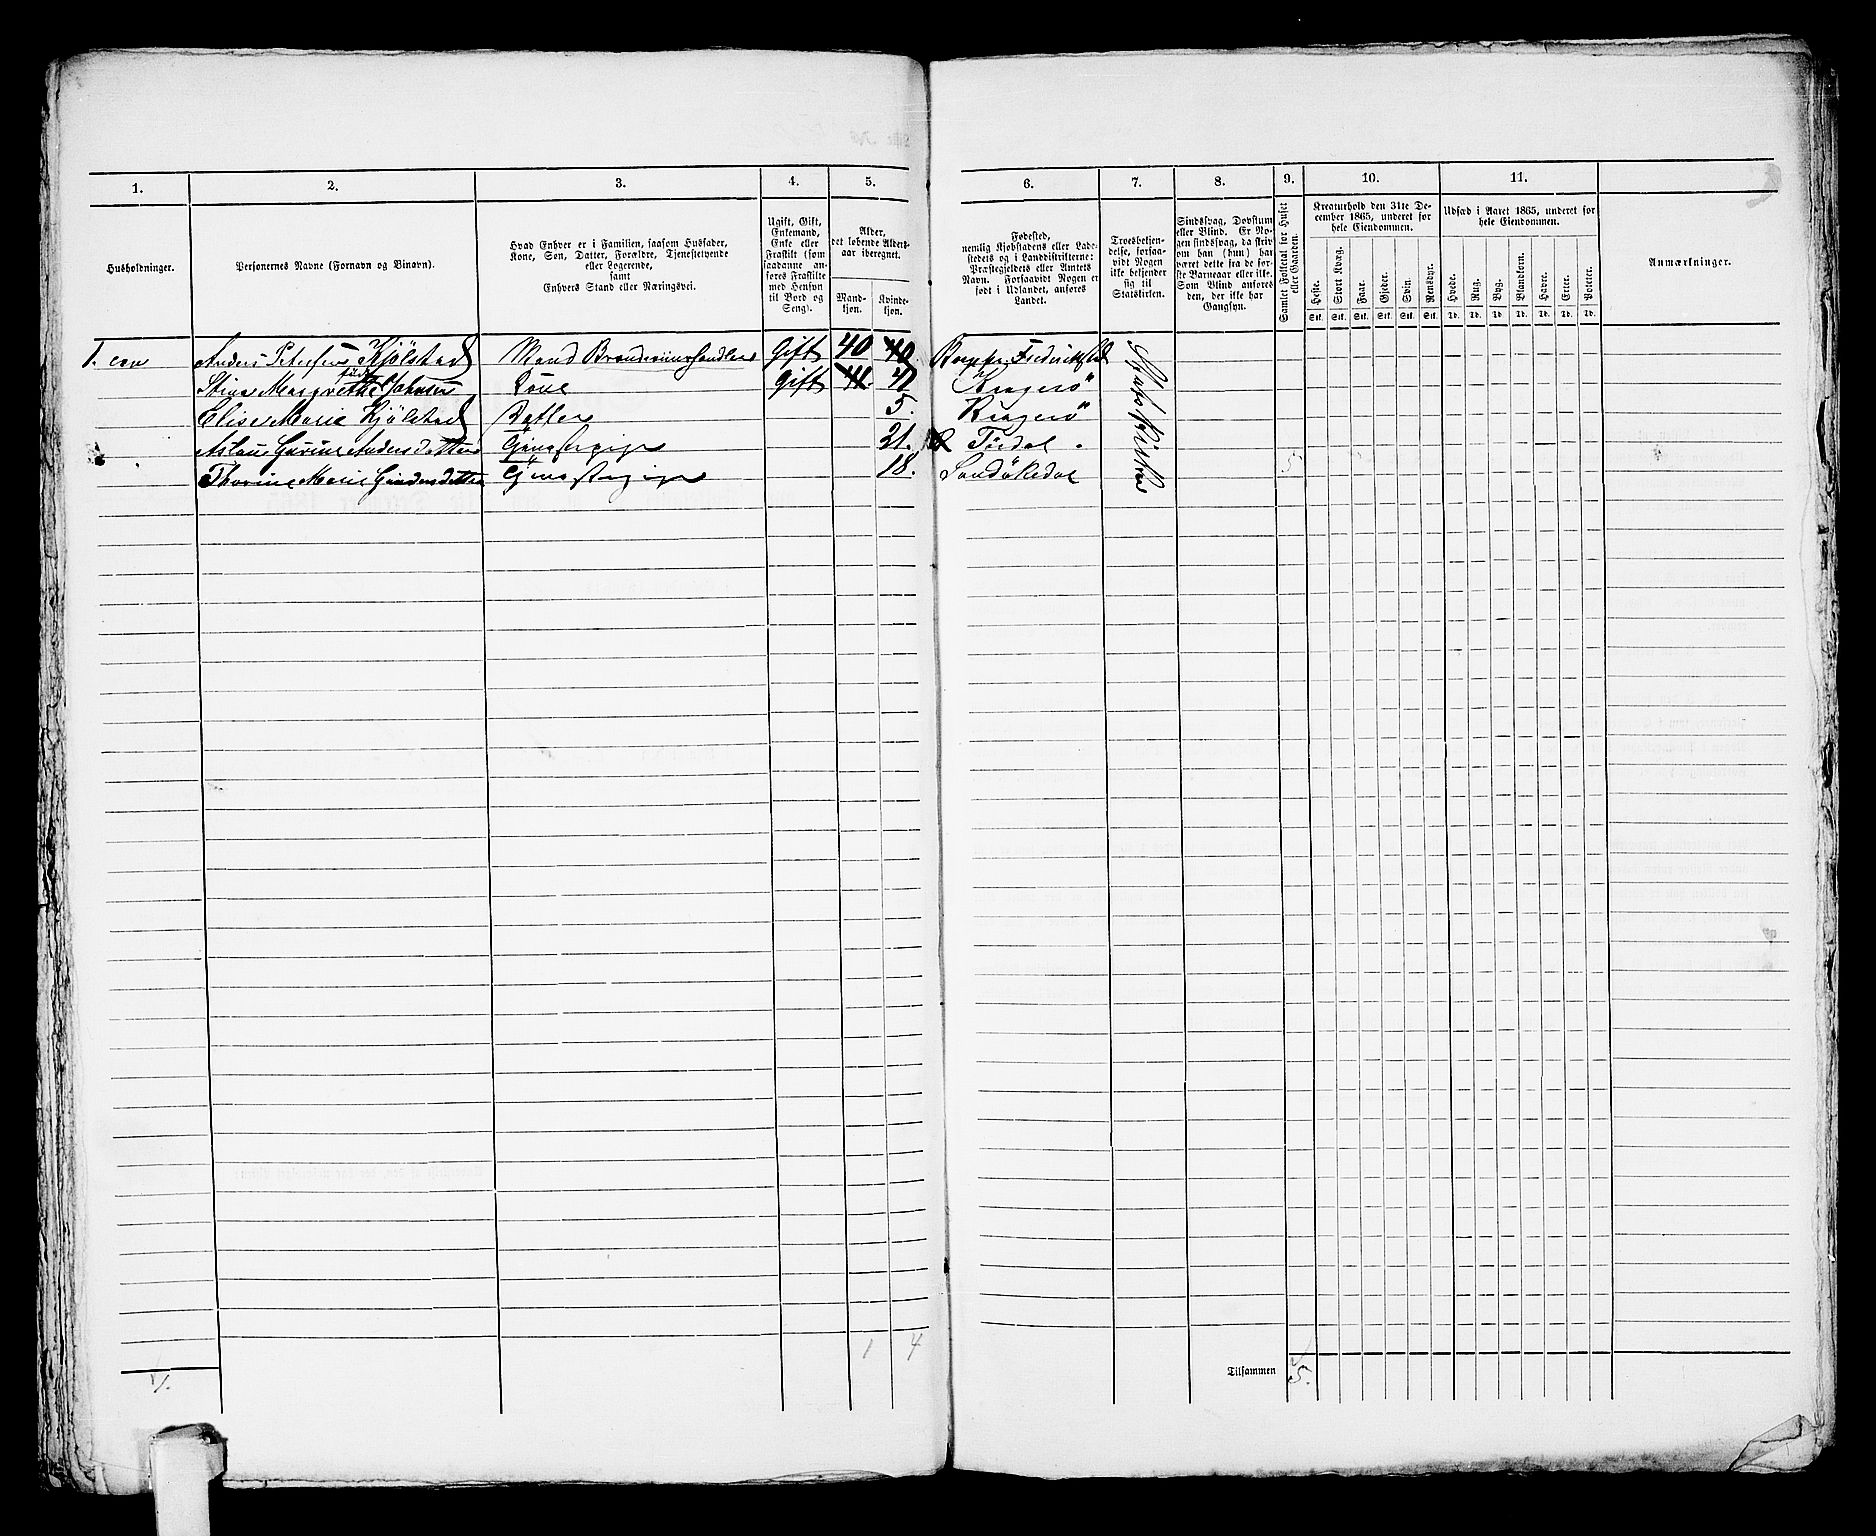 1. 2. 3. 4. 5. 6. 7. 8. 9. 10. 11.
Husholdninger.
Personernes Navne (Fornavn og Vinavn).
Hvad Enhver er i Familien, saasom Husfader,
Kone, Søn, Datter, Forældre, Tjenestetyende
eller Logerende,
samt
Enhvers Stand eller Næringsvei.
Ugift, Gift,
Enkemand,
Enke eller
Fraskilt (som
saadanne an-
føres Fraskilte
med Hensyn
til Bord og
Seng).
Alder,
det løbende Alders-
aar iberegnet.
Mand-
kjøn.
Kvinde-
kjøn.
Fødested,
nemlig Kjøbstadens eller Lade-
stedets og i Landdistrikterne:
Præstegjeldets eller Amtets
Navn. Forsaavidt Nogen er
født i Udlandet, anføres
Landet.
Troesbekjen-
delse, forsaa-
vidt Nogen
ikke bekjender
sig til
Statskirken.
Sindssvag, Døvstum
eller Blind. Er No-
gen sindssvag, da skriv
om han (hun) har
været dette fra de før-
ste Barneaar eller ikke.
Som Blind anføres
den, der ikke har
Gangsyn.
Samlet Folketal for Huset
eller Gaarden.
Kreaturhold den 31te De-
cember 1865, underet for
hele Eiendommen.
Heste. Stort Kvæg. Faar. Gjeder. Svin. Rensdyr.
Stk. Stk. Stk. Stk. Stk. Stk.
Udsæd i Aaret 1865, underet for
hele Eiendommen.
Hvede. Rug. Byg. Blandkorn. Havre. Erter. Poteter.
Td. Td. Td. Td. Td. Td. Td.
Anmærkninger.
1. een Anders Petersen Kjölstad Mand Brændeviinshandler Gift 40 40 Frederikstad Statskirken
født
Stine Margrethe Johnsen Kone Gift 41. 41 Kragerö
Elise Marie Kjölstad Datter 5. Kragerö
Aslau Gurine Andersdatter Tjenestepige 21. Tördal.
Thorine Marie Gundersdatter Tjenestepige 18. Sandökedal 5
1 4
1/. Tilsammen 5.